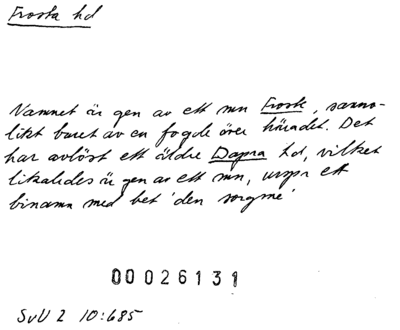 Frosta hd
Namnet är gen av ett mn Froste, sanno-
likt buret av en fogde över häradet. Det
har avlöst ett äldre Dapra hd, vilket
likaledes är gen av ett mn, urspr ett
binamn med bet 'den sorgsne'
00026131
SvU 2 10:685